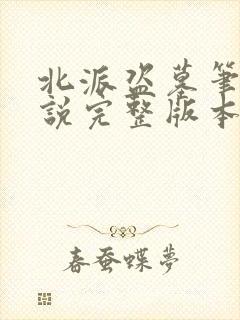 北派盗墓筆
說完整版本
春蚕蝶夢